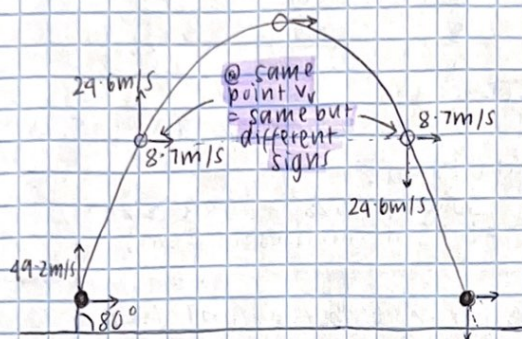 24.6m/s
@ same
point Vv
= same but
different
signs
8.7m/s
8.7m/s
24.6m/s
49.2m/s
80°